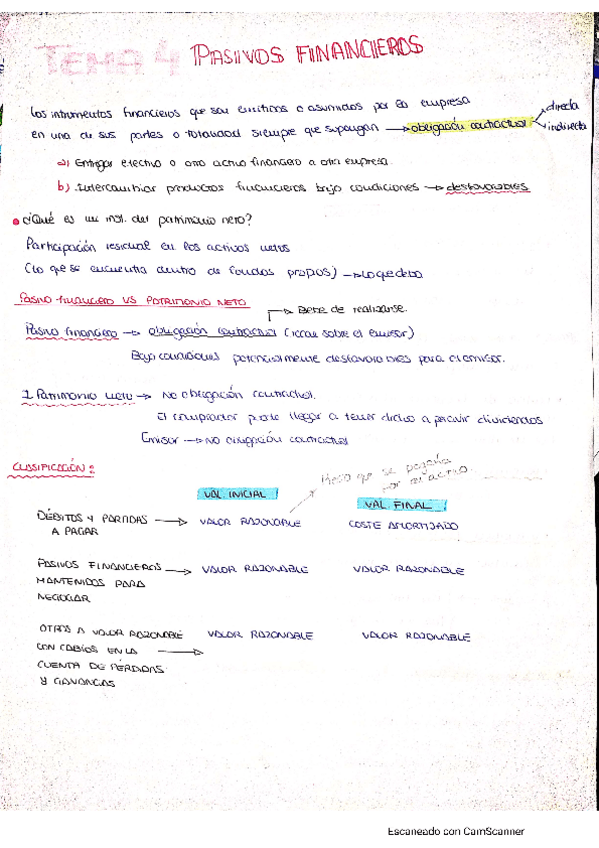 TEMA 4 PASIVOS FINANCIEROS
Los intrumentos financieros que sau emitimos o asumidos por la empresa
en una de sus partes o totalidad siempre que supongan → obligación contractual directa
indirecta
a) Entregar efectivo o otro activo financiero a otra empresa.
b) Intercambiar productos financieros bajo condiciones → desfavorables
¿Qué es un inst. del patrimonio neto?
Participación residual en los activos netos
(lo que se encuentra dentro de fondos propios) → lo que debo
PASIVO financiero VS PATRIMONIO NETO
→ Debe de realizarse.
Pasivo financiero → obligación contractual (recae sobre el emisor)
Bajo condiciones potencialmente desfavorables para el emisor.
I. Patrimonio neto → No obligación contractual.
El comprador puede llegar a tener dicho a percivir dividendos
Emisor → No obligación contractual
CLASIFICACIÓN:
Precio que se pagaría
por un activo.
VAL INICIAL VAL FINAL
DÉBITOS Y PARTIDAS → VALOR RAZONABLE COSTE AMORTIZADO
A PAGAR
PASIVOS FINANCIEROS → VALOR RAZONABLE VALOR RAZONABLE
MANTENIDOS PARA
NEGOCIAR
OTROS A VALOR RAZONABLE VALOR RAZONABLE VALOR RAZONABLE
CON CABIOS EN LA →
CUENTA DE PÉRDIDAS
Y GANANCIAS
Escaneado con CamScanner